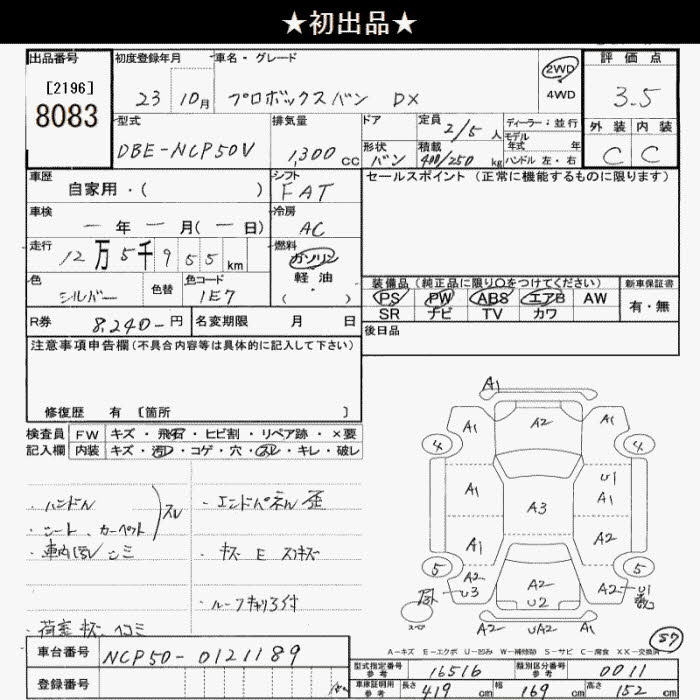 ★初出品★
出品番号 初度登録年月 車名・グレード 評価点
[2196]
8083
23 10月 プロボックスバン DX
2WD
4WD
3.5
外装 内装
C C
型式 排気量 ドア 定員 ディーラー:並行
DBE-NCP50V 1,300cc
2/5人
モデル年式 年
形状 バン 積載 400/250kg ハンドル 左・右
車歴 自家用・( )
シフト FAT
セールスポイント(正常に機能するものに限ります)
車検 ー年ー月(ー日)
冷房 AC
走行 12万5千955km
燃料 ガソリン
軽油
( ・ )
色 シルバー 色替 色コード 1E7
装備品(純正品に限り○をつけてください) 新車保証書
PS PW ABS エアB AW 有・無
SR ナビ TV カワ
R券 8,240-円 名変期限 月 日
後日品
注意事項申告欄(不具合内容等は具体的に記入して下さい)
修復歴 有 〔箇所 〕
検査員 FW キズ・飛石・ヒビ割・リペア跡・×要
記入欄 内装 キズ・汚レ・コゲ・穴・スレ・キレ・破レ
・ハンドル
・シート、カーペット スレ
・車内汚レ シミ
・荷室 キズ ヘコミ
・エンドパネル 歪
・キズ E スリキズ
・ルーフキャリア付
A1
A1 A2 A1
4 4
A1 A3 U1 A1
A1 A2
5 5
A2 U3 A2 U2 A2 U1
スペア
A2 UA2 A1
A-キズ E-エクボ U-凹み W-補修跡 S-サビ C-腐食 XX-交換済
57
車台番号 NCP50-0121189
登録番号
型式指定番号 参考 16516 類別区分番号 参考 0011
車庫証明用 参考 長さ 419cm 幅 169cm 高さ 152cm